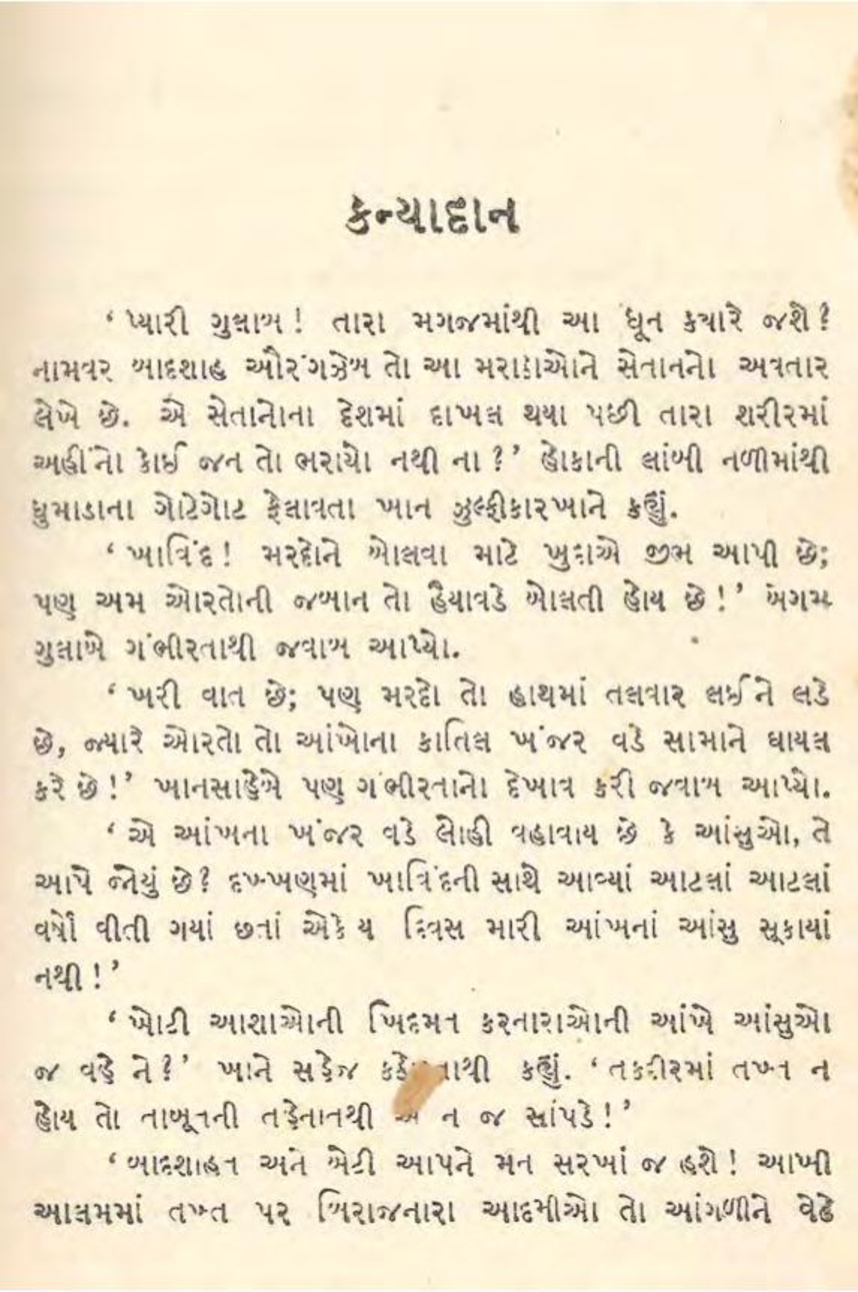 કન્યાદાન
‘ પ્યારી ગુલાબ ! તારા મગજમાંથી આ ધૂન ક્યારે જશે ?
નામવર બાદશાહ ઔરંગઝેબ તો આ મરાઠાઓને સેતાનનો અવતાર
લેખે છે. એ સેતાનોના દેશમાં દાખલ થયા પછી તારા શરીરમાં
અહીંનો કોઈ જન તો ભરાયો નથી ના ? ’ હોકાની લાંબી નળીમાંથી
ધુમાડાના ગોટેગોટ ફેલાવતા ખાન ઝુલ્ફીકારખાને કહ્યું.
‘ ખાવિંદ ! મરદોને બોલવા માટે ખુદાએ જીભ આપી છે;
પણ અમ ઓરતોની જબાન તો હૈયાવડે બોલતી હોય છે ! ’ બેગમ
ગુલાબે ગંભીરતાથી જવાબ આપ્યો.
‘ ખરી વાત છે; પણ મરદો તો હાથમાં તલવાર લઈને લડે
છે, જ્યારે ઓરતો તો આંખોના કાતિલ ખંજર વડે સામાને ઘાયલ
કરે છે ! ’ ખાનસાહેબે પણ ગંભીરતાનો દેખાવ કરી જવાબ આપ્યો.
‘ એ આંખના ખંજર વડે લોહી વહાવાય છે કે આંસુઓ, તે
આપે જોયું છે ? દખ્ખણમાં ખાવિંદની સાથે આવ્યાં આટલાં આટલાં
વર્ષો વીતી ગયાં છતાં એકે ય દિવસ મારી આંખનાં આંસુ સૂકાયાં
નથી ! ’
‘ ખોટી આશાઓની ખિદમત કરનારાઓની આંખે આંસુઓ
જ વહે ને ? ’ ખાને સહેજ કહ્યું. ‘ તકદીરમાં તખ્ત ન
હોય તો તાબૂતની તહેનાતથી ન જ સાંપડે ! ’
‘ બાદશાહત અને બેટી આપને મન સરખાં જ હશે ! આખી
આલમમાં તખ્ત પર બિરાજનારા આદમીઓ તો આંગળીને વેઢે